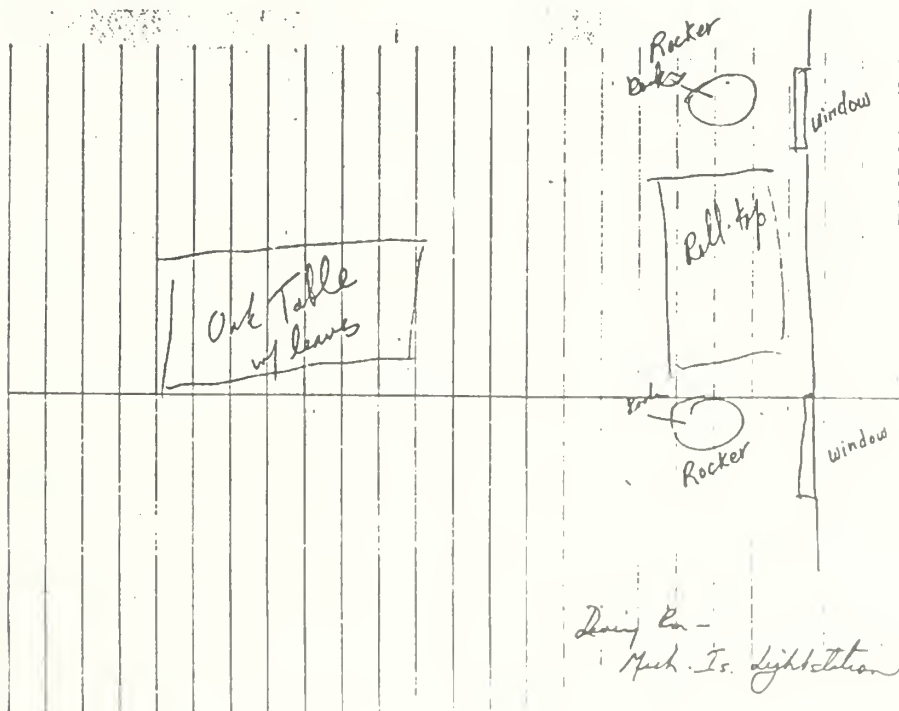 Rocker
window
Roll-top
Oak Table
w/ leaves
Rocker
window
Dining Rm -
Mich. Is. Lightstation